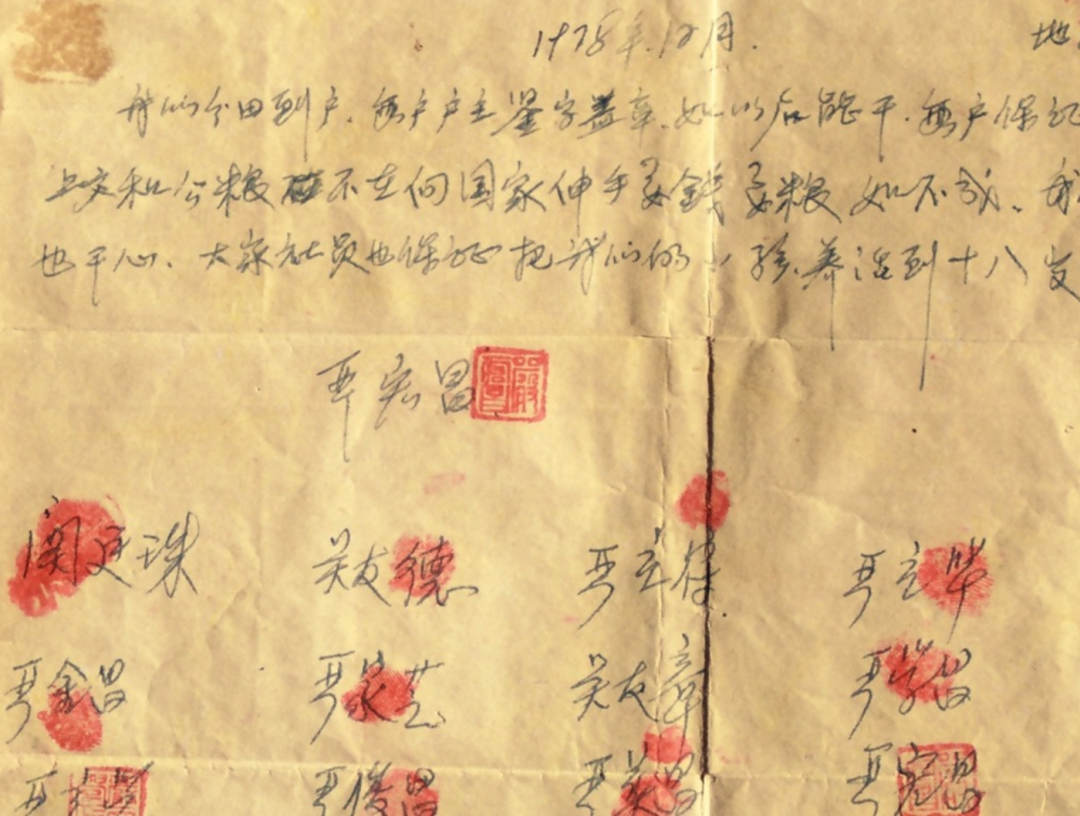 1978年.12月. 地
我们分田到户.每户户主鉴字盖章.如以后能干.每户保证
上交和公粮 不在向国家伸手要錢要粮如不成.我
也干心.大家社员也保证把我们的小孩.养活到十八岁
严宏昌
关廷珠 关友德 严立符 严立华
严金昌 严家芝 关友章 严学昌
严俊昌 严美昌 严宏昌